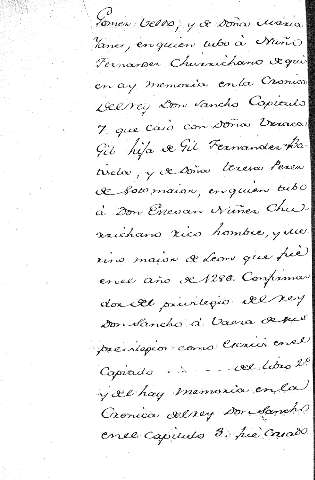 Gomez Velos, y de Doña Maria
Yanez, en quien tubo à Nuñi
Fernandez Churrichano de qui
en ay memoria en la Cronica
del rey Don Sancho Capitulo
7 que casò con Doña Urraca
Gil hija de Gil Fernandez Ba
, y de Doña teresa Perez
de Sotomaior, en quien tubo
à Don Estevan Nuñez Chu
rrichano rico hombre, y me
rino maior de Leon que fuè
en el año de 1286. Confirma
dor del privilegio del rey
Don Sancho à de sus
previlegios como escrivi en el
Capitulo . . - - . del libro 2º
y del hay memoria en la
Cronica del rey Don Sancho
en el Capitulo 3. fuè Casado